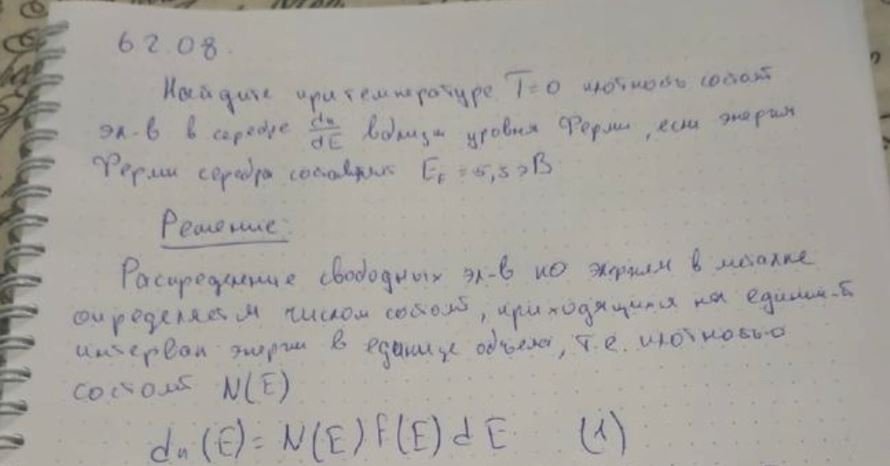 62.08.
Найдите при температуре T=0 плотность состояг
эл-в в серебре dn/dE вблизи уровня Ферми, если энергия
Ферми серебра составляет E_F = 5,5 эВ
Решение:
Распределение свободных эл-в по энергиям в металле
определяется числом состояг, приходящихся на единич-й
интервал энергии в единице объема, т.е. плотностью
состояг N(E)
dn(E) = N(E) F(E) dE (1)